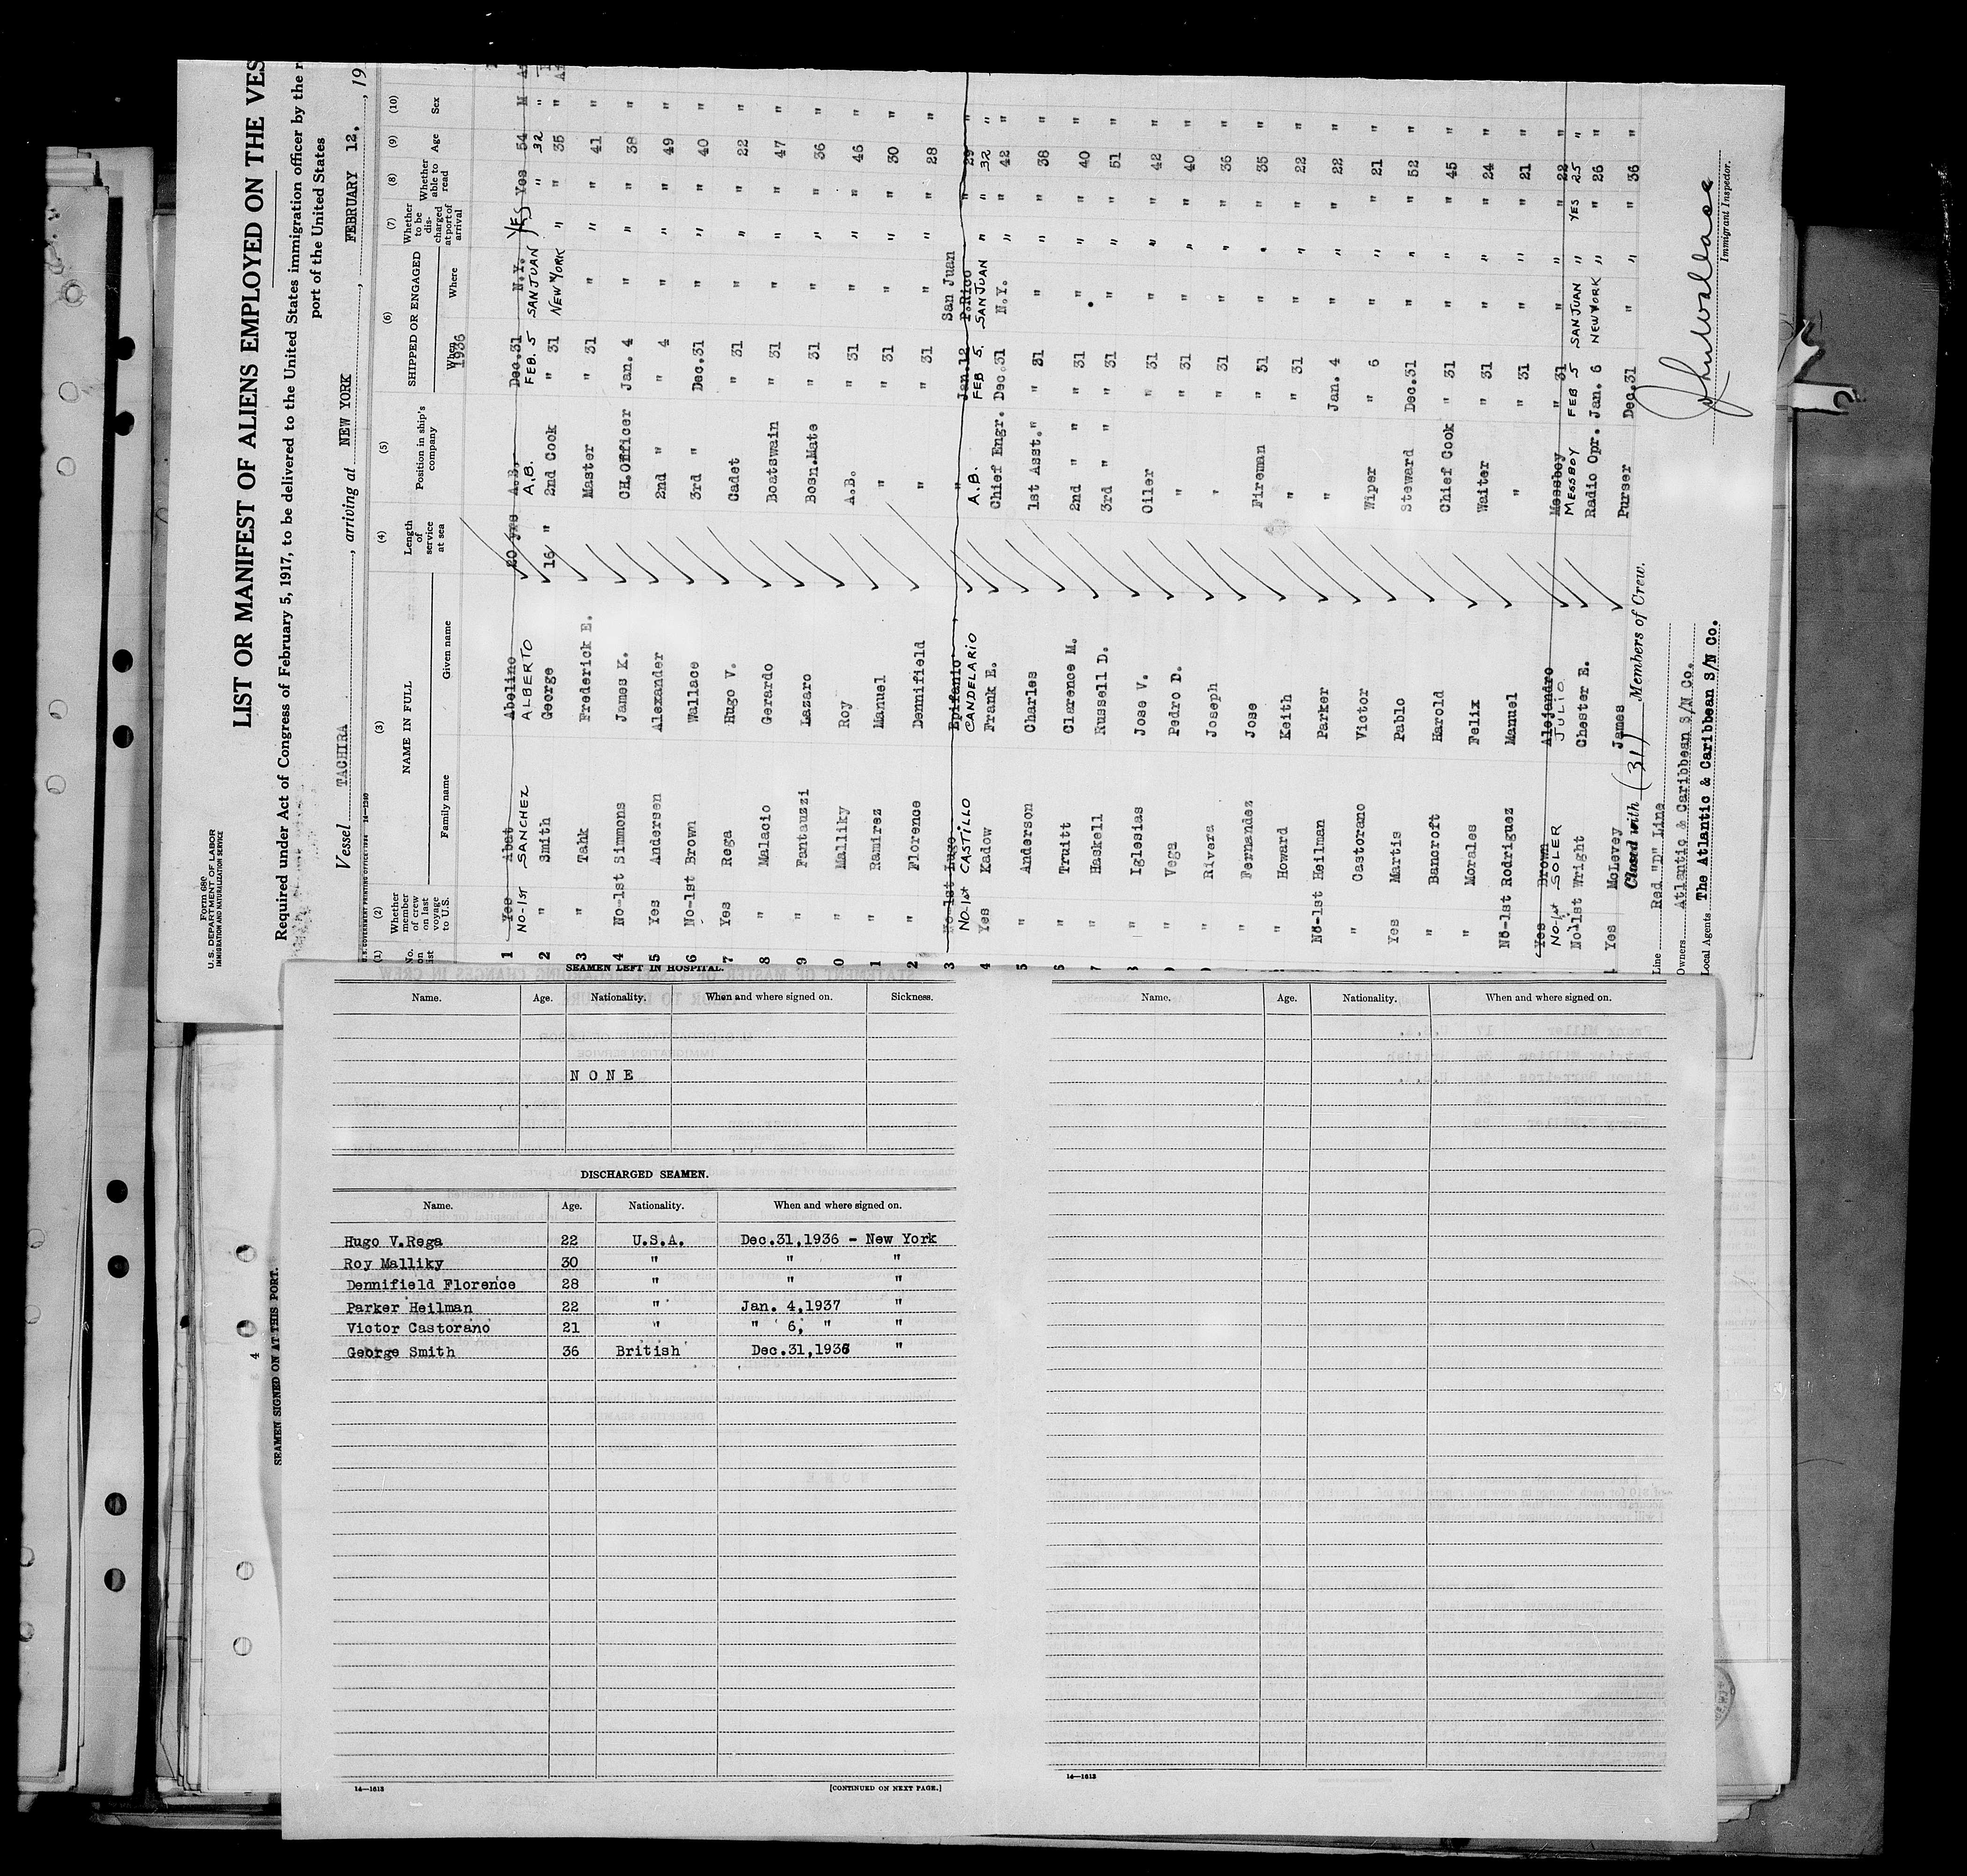 Form 680
U.S. DEPARTMENT OF LABOR
IMMIGRATION AND NATURALIZATION SERVICE
LIST OR MANIFEST OF ALIENS EMPLOYED ON THE VES
Required under Act of Congress of February 5, 1917, to be delivered to the United States immigration officer by the r
port of the United States
Vessel TACHIRA, arriving at NEW YORK, FEBRUARY 12, 19
(1) (2) (3) (4) (5) (6) (7) (8) (9) (10)
No. on list Whether member of crew on last voyage to U.S. NAME IN FULL Family name Given name Length of service at sea Position in ship's company SHIPPED OR ENGAGED When Where Whether to be discharged at port of arrival Whether able to read Age Sex
1936
1 Yes Abat Abelino 20 yrs A.B. Dec.31 N.Y. YES Yes 54 M
NO-1ST SANCHEZ ALBERTO A.B. FEB. 5 SANJUAN " 32 "
2 " Smith George 16 " 2nd Cook " 31 NEW YORK " " 35 "
3 " Tahk Frederick E. Master " 31 " " " 41 "
4 No-1st Simmons James K. CH.Officer Jan. 4 " " " 38 "
5 Yes Andersen Alexander 2nd " " 4 " " " 49 "
6 No-1st Brown Wallace 3rd " Dec.31 " " " 40 "
7 Yes Rega Hugo V. Cadet " 31 " " " 22 "
8 " Malacio Gerardo Boatswain " 31 " " " 47 "
9 " Fantauzzi Lazaro Bosn.Mate " 31 " " " 36 "
0 " Malliky Roy A.B. " 31 " " " 46 "
1 " Ramirez Manuel " " 31 " " " 30 "
2 " Florence Dennifield " " 31 " " " 28 "
3 No-1st Lugo Epifanio " Jan.12 San Juan P.Rico " 29 "
NO-1st CASTILLO CANDELARIO A.B. FEB 5. SANJUAN " " 32 "
4 Yes Kadow Frank E. Chief Engr. Dec.31 N.Y. " " 42 "
5 " Anderson Charles 1st Asst." " 31 " " " 38 "
6 " Truitt Clarence M. 2nd " " " 31 " " " 40 "
7 " Haskell Russell D. 3rd " " " 31 " " " 51 "
8 " Iglesias Jose V. Oiler " 31 " " " 42 "
9 " Vega Pedro D. " " 31 " " " 40 "
0 " Rivera Joseph " " 31 " " " 36 "
" Fernandez Jose Fireman " 31 " " " 35 "
" Howard Keith " " 31 " " " 22 "
No-1st Heilman Parker " Jan. 4 " " " 22 "
" Castorano Victor Wiper " 6 " " " 21 "
Yes Martis Pablo Steward Dec.31 " " " 52 "
" Bancroft Harold Chief Cook " 31 " " " 45 "
" Morales Felix Waiter " 31 " " " 24 "
No-1st Rodriguez Manuel " " 31 " " " 21 "
Yes Brown Alejandro Messboy " 31 " " " 22 "
NO-1st SOLER JULIO MESSBOY FEB 5 SANJUAN " YES 25 "
No-1st Wright Chester E. Radio Opr. Jan. 6 NEW YORK " " 26 "
Yes McLevey James Purser Dec.31 " " " 36 "
Closed with (31) Members of Crew.
Line Red "D" Line
Owners Atlantic & Caribbean S/N Co.
Local Agents The Atlantic & Caribbean S/N Co.
John Wallace
Immigrant Inspector.
SEAMEN LEFT IN HOSPITAL.
Name. Age. Nationality. When and where signed on. Sickness.
NONE
DISCHARGED SEAMEN.
Name. Age. Nationality. When and where signed on.
Hugo V.Rega 22 U.S.A. Dec.31,1936 - New York
Roy Malliky 30 " " "
Dennifield Florence 28 " " "
Parker Heilman 22 " Jan. 4,1937 "
Victor Castorano 21 " " 6, " "
George Smith 36 British Dec.31,1936 "
14—1613
[CONTINUED ON NEXT PAGE.]
SEAMEN SIGNED ON AT THIS PORT.
4
Name. Age. Nationality. When and where signed on.
14—1613